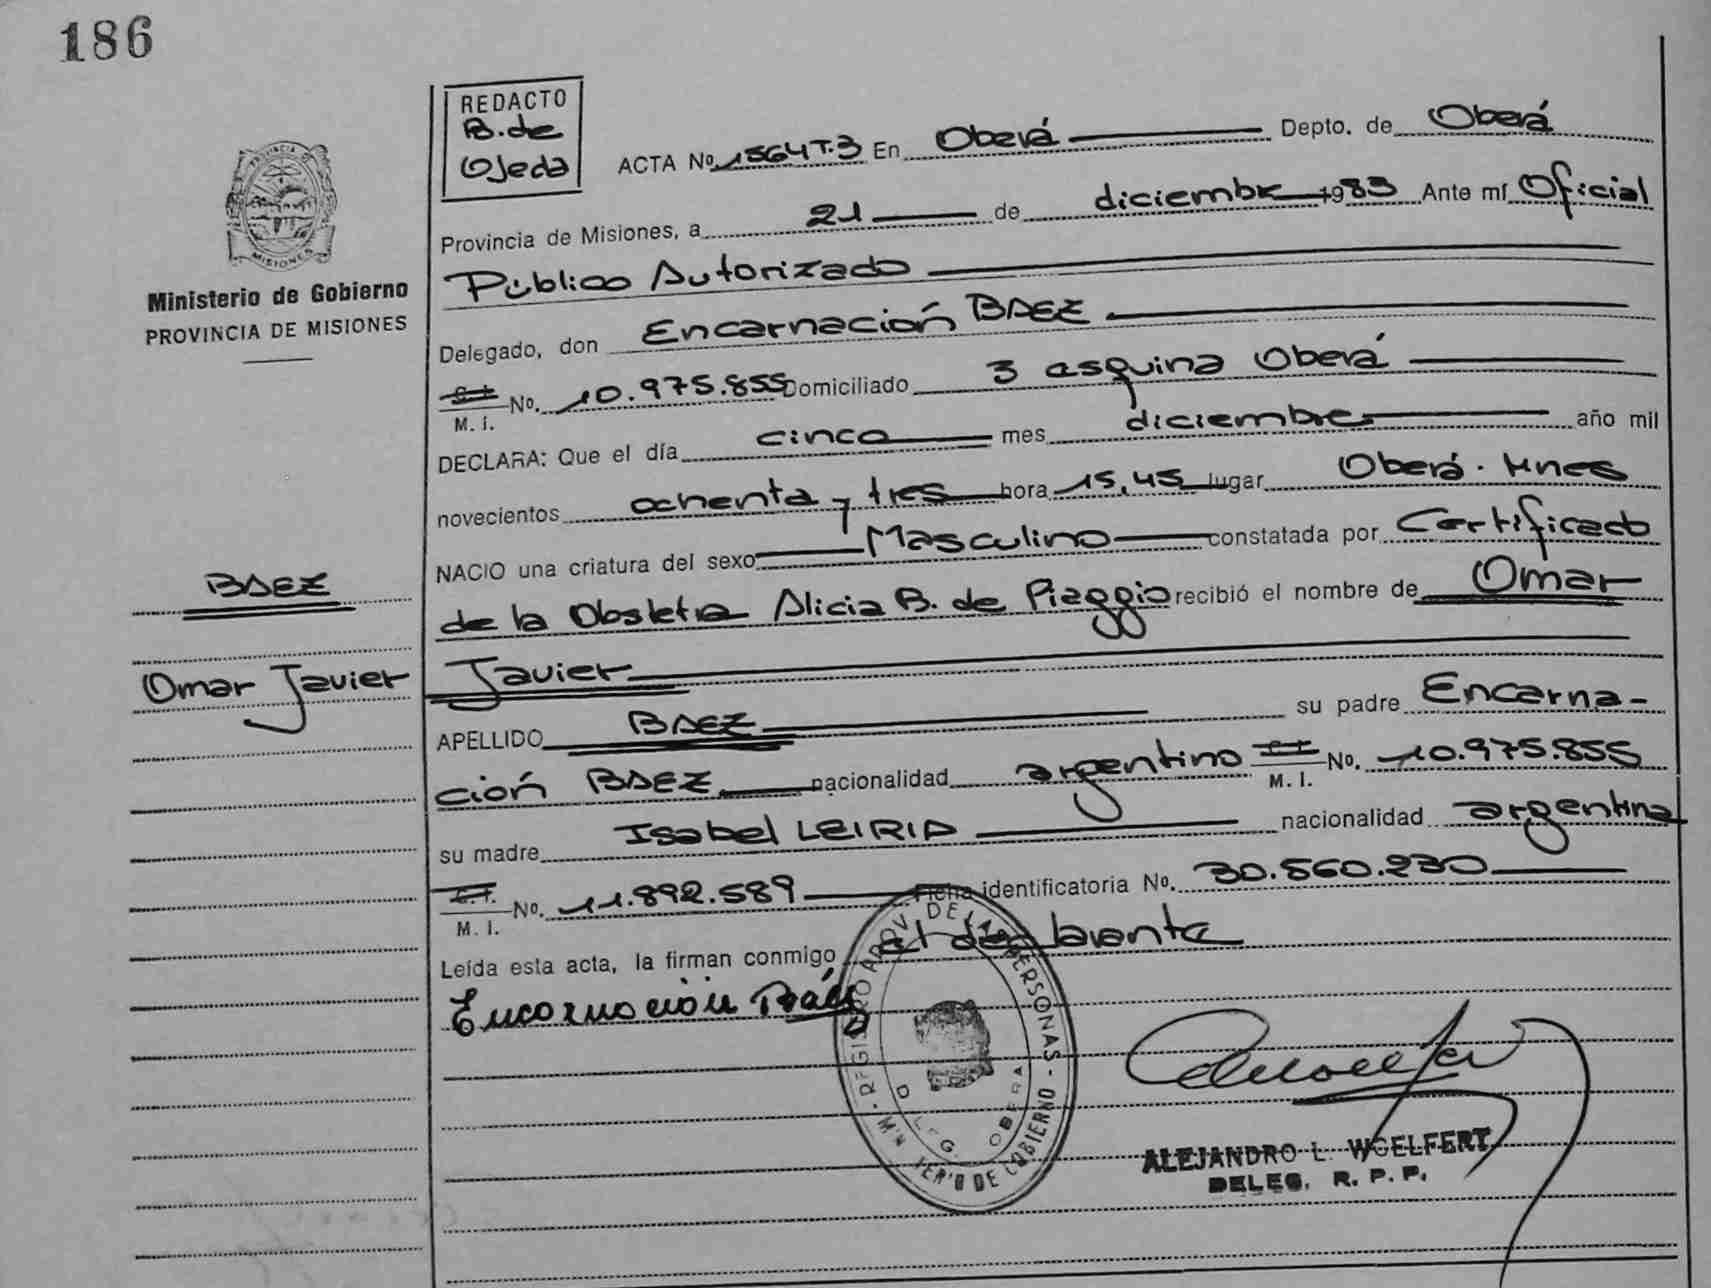 186
REDACTO
B. de
Ojeda
ACTA No. 1564 T.3 En Oberá Depto. de Oberá
PROVINCIA DE
MISIONES
Ministerio de Gobierno
PROVINCIA DE MISIONES
Provincia de Misiones, a 21 de diciembre 1983 Ante mí Oficial
Público Autorizado
Delegado, don Encarnación BAEZ
M. I. No. 10.975.855 Domiciliado 3 esquina Oberá
DECLARA: Que el día cinco mes diciembre año mil
novecientos ochenta y tres hora 15,45 lugar Oberá. Mnes
NACIO una criatura del sexo Masculino constatada por Certificado
de la Obstetra Alicia B. de Piaggio recibió el nombre de Omar
Javier
BAEZ
Omar Javier
APELLIDO BAEZ su padre Encarna-
ción BAEZ nacionalidad argentino M. I. No. 10.975.855
su madre Isabel LEIRIA nacionalidad argentina
M. I. No. 11.892.589 Ficha identificatoria No. 30.560.230
Leída esta acta, la firman conmigo el declarante
Encarnación Báez
REGISTRO PROV. DE LAS PERSONAS - MINISTERIO DE GOBIERNO -
DELEG. OBERA
ALEJANDRO L. WOELFERT
DELEG. R. P. P.